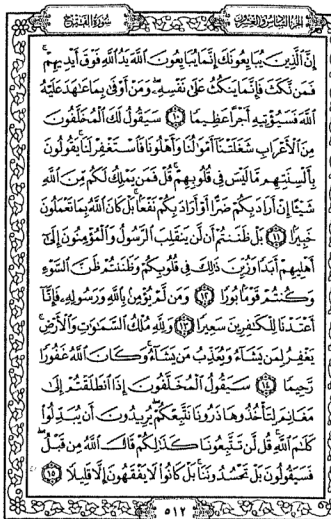 الجزء السادس والعشرون سورة الفتح
إِنَّ ٱلَّذِينَ يُبَايِعُونَكَ إِنَّمَا يُبَايِعُونَ ٱللَّهَ يَدُ ٱللَّهِ فَوْقَ أَيْدِيهِمْ
فَمَن نَّكَثَ فَإِنَّمَا يَنكُثُ عَلَىٰ نَفْسِهِۦ وَمَنْ أَوْفَىٰ بِمَا عَٰهَدَ عَلَيْهُ
ٱللَّهَ فَسَيُؤْتِيهِ أَجْرًا عَظِيمًا ١٠ سَيَقُولُ لَكَ ٱلْمُخَلَّفُونَ
مِنَ ٱلْأَعْرَابِ شَغَلَتْنَآ أَمْوَٰلُنَا وَأَهْلُونَا فَٱسْتَغْفِرْ لَنَا يَقُولُونَ
بِأَلْسِنَتِهِم مَّا لَيْسَ فِى قُلُوبِهِمْ قُلْ فَمَن يَمْلِكُ لَكُم مِّنَ ٱللَّهِ
شَيْـًٔا إِنْ أَرَادَ بِكُمْ ضَرًّا أَوْ أَرَادَ بِكُمْ نَفْعًۢا بَلْ كَانَ ٱللَّهُ بِمَا تَعْمَلُونَ
خَبِيرًۢا ١١ بَلْ ظَنَنتُمْ أَن لَّن يَنقَلِبَ ٱلرَّسُولُ وَٱلْمُؤْمِنُونَ إِلَىٰٓ
أَهْلِيهِمْ أَبَدًا وَزُيِّنَ ذَٰلِكَ فِى قُلُوبِكُمْ وَظَنَنتُمْ ظَنَّ ٱلسَّوْءِ
وَكُنتُمْ قَوْمًۢا بُورًا ١٢ وَمَن لَّمْ يُؤْمِنۢ بِٱللَّهِ وَرَسُولِهِۦ فَإِنَّآ
أَعْتَدْنَا لِلْكَٰفِرِينَ سَعِيرًا ١٣ وَلِلَّهِ مُلْكُ ٱلسَّمَٰوَٰتِ وَٱلْأَرْضِ
يَغْفِرُ لِمَن يَشَآءُ وَيُعَذِّبُ مَن يَشَآءُ وَكَانَ ٱللَّهُ غَفُورًا
رَّحِيمًا ١٤ سَيَقُولُ ٱلْمُخَلَّفُونَ إِذَا ٱنطَلَقْتُمْ إِلَىٰ
مَغَانِمَ لِتَأْخُذُوهَا ذَرُونَا نَتَّبِعْكُمْ يُرِيدُونَ أَن يُبَدِّلُوا۟
كَلَٰمَ ٱللَّهِ قُل لَّن تَتَّبِعُونَا كَذَٰلِكُمْ قَالَ ٱللَّهُ مِن قَبْلُ
فَسَيَقُولُونَ بَلْ تَحْسُدُونَنَا بَلْ كَانُوا۟ لَا يَفْقَهُونَ إِلَّا قَلِيلًا ١٥
٥١٢